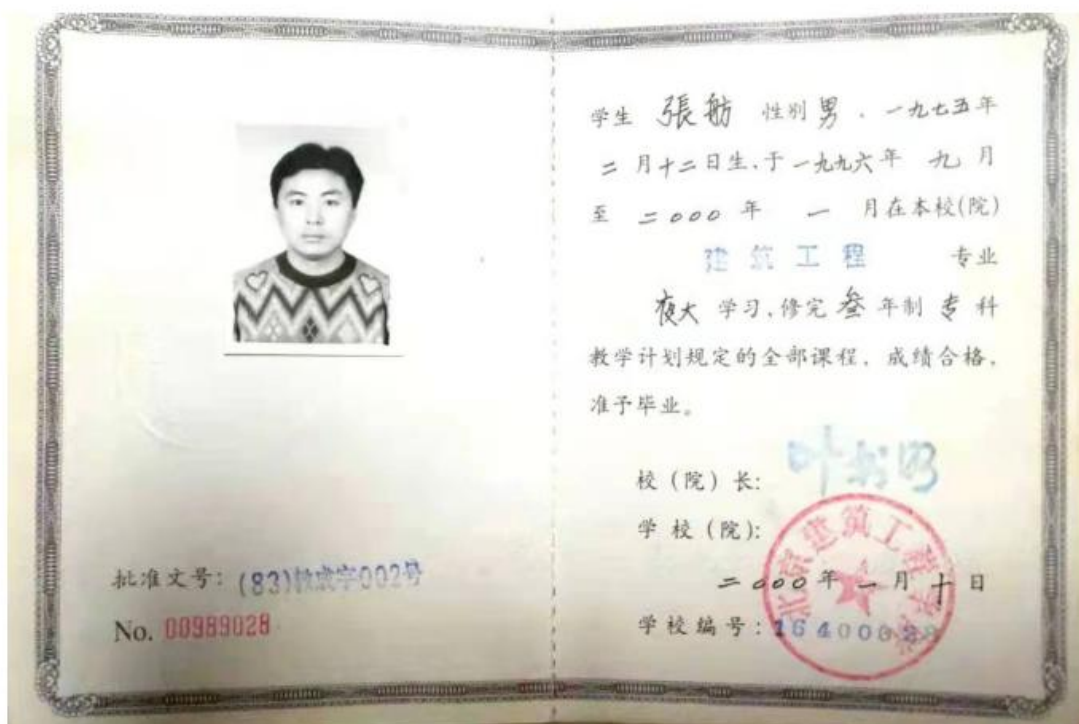 批准文号：(83)教成字002号
No. 00989028
学生 張舫 性别男，一九七五年
二月十二日生，于一九九六年 九月
至 二000 年 一 月在本校(院)
建筑工程 专业
夜大 学习，修完叁年制专科
教学计划规定的全部课程，成绩合格，
准予毕业。
校（院）长：
学校（院）：
北京建筑工程学院
二000年一月十日
学校编号：